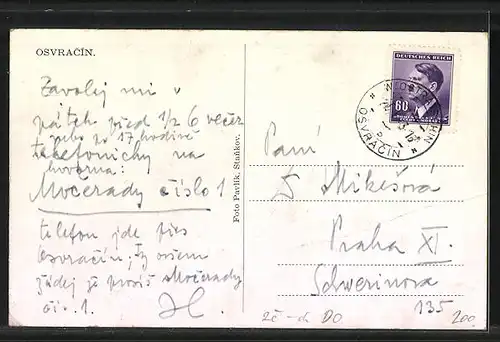 OSVRAČÍN.
Zavolej mi v
pátek před 1/2 6 večer
nebo po 17 hodině
telefonicky na
hovorna:
Močerady číslo 1
telefon jde přes
Osvračín; Ty ovšem
žádej jen prosíš Močerady
čís. 1.
Foto Pavlík, Staňkov.
DEUTSCHES REICH
60
OSVRAČÍN
Paní
Mikešová
Praha XI.
Schwerinova
135
DO
200